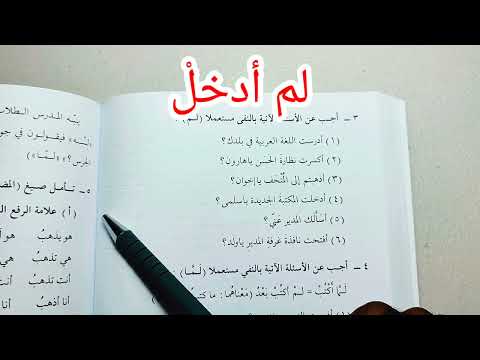 لم أدخلْ
٣ ــ أجب عن الأسئلة الآتية بالنفى مستعملا (لـم) :
(١) أدرست اللغة العربية في بلدك؟
(٢) أكسرت نظارة الحسن ياهارون؟
(٣) أذهبتم إلى الْمُتْحَف ياإخوان؟
(٤) أدخلت المكتبة الجديدة ياسلمى؟
(٥) أسألك المدير عنّي؟
(٦) أفتحت نافذة غرفة المدير ياولد؟
٤ ــ أجب عن الأسئلة الآتية بالنفي مستعملا (لَـمَّـا)
لَمَّا أَكْتُبْ = لَـمْ أكتُبْ بَعْدُ (مَعْناهُما: ما
ينبّه المدرس
فيقولون في
الجرس؟» «لـمّا»
٥ ــ تأمـل صيغ
(أ) علامة الرفع
هو يذهبُ هو
هي تذهبُ هي
أنت تذهبُ أنت
أنا أذهبُ أنا